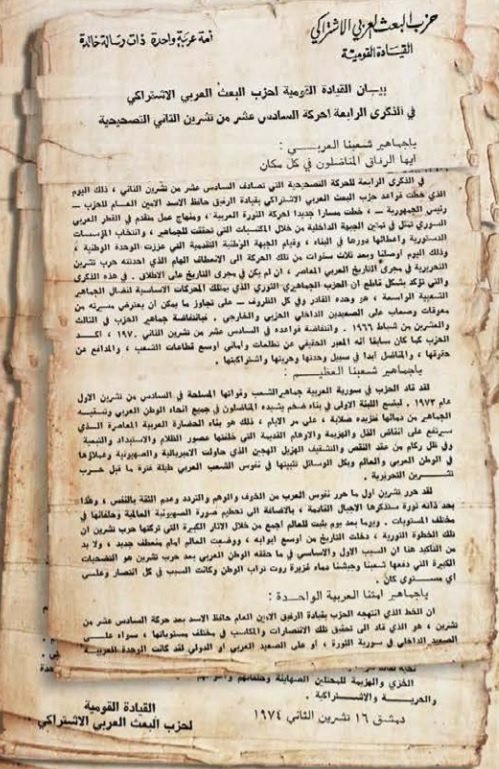 حزب البعث العربي الاشتراكي
القيادة القومية
أمة عربية واحدة ذات رسالة خالدة
بيان القيادة القومية لحزب البعث العربي الاشتراكي
في الذكرى الرابعة لحركة السادس عشر من تشرين الثاني التصحيحية
ياجماهير شعبنا العربي :
ايها الرفاق المناضلون في كل مكان
في الذكرى الرابعة للحركة التصحيحية التي تصادف السادس عشر من تشرين الثاني ، ذلك اليوم
الذي خطت قواعد حزب البعث العربي الاشتراكي بقيادة الرفيق حافظ الاسد الامين العام للحزب –
ورئيس الجمهورية – ، خطت مسارا جديدا لحركة الثورة العربية ، ومنهاج عمل متقدم في القطر العربي
السوري تمثل في تمتين الجبهة الداخلية من خلال المكتسبات التي تحققت للجماهير ، وانتخاب المؤسسات
الدستورية واعطائها دورها في البناء ، وقيام الجبهة الوطنية التقدمية التي عززت الوحدة الوطنية ،
وذلك اليوم اوصلنا وبعد ثلاث سنوات من تلك الحركة الى الانعطاف الهام الذي احدثته حرب تشرين
التحريرية في مجرى التاريخ العربي المعاصر ، ان لم يكن في مجرى التاريخ على الاطلاق . في هذه الذكرى
والتي تؤكد بشكل قاطع ان الحزب الجماهيري الثوري الذي يمتلك المحركات الاساسية لنضال الجماهير
الشعبية الواسعة ، هو وحده القادر وفي كل الظروف – على تجاوز ما يمكن ان يعترض مسيرته من
معوقات وصعاب على الصعيدين الداخلي الحزبي والخارجي . فبانتفاضة جماهير الحزب في الثالث
والعشرين من شباط ١٩٦٦ . وانتفاضة قواعده في السادس عشر من تشرين الثاني ١٩٧٠ ، اكد
الحزب كما كان سابقا أنه المعبر الحقيقي عن تطلعات وأماني اوسع قطاعات الشعب ، والمدافع عن
حقوقها ، والمناضل ابدا في سبيل وحدتها وحريتها واشتراكيتها .
ياجماهير شعبنا العظيم :
لقد قاد الحزب في سورية العربية جماهير الشعب وقواتها المسلحة في السادس من تشرين الاول
عام ١٩٧٣ . ليضع اللبنة الاولى في بناء ضخم يشيده المناضلون في جميع انحاء الوطن العربي وتسقيه
الجماهير من دمائها فتزيده صلابة ، على مر الايام ، ذلك هو بناء الحضارة العربية المعاصرة الذي
سيرتفع على انقاض القل والهزيمة والاوهام القديمة التي خلفتها عصور الظلام والاستبداد والتبعية
وفي ظل ركام من عقد النقص والتثقيف الهزيل الهجين الذي حاولت الامبريالية والصهيونية وعملاؤها
في الوطن العربي والعالم وبكل الوسائل تثبيتها في نفوس الشعب العربي طيلة فترة ما قبل حرب
تشرين التحريرية .
لقد حرر تشرين اول ما حرر نفوس العرب من الخوف والوهم والتردد وعدم الثقة بالنفس ، وهذا
بحد ذاته ثورة ستذكرها الاجيال القادمة ، بالاضافة الى تحطيم صورة الصهيونية العالمية وحلفائها في
مختلف المستويات . ويوما بعد يوم يثبت للعالم اجمع من خلال الاثار الكبيرة التي تركتها حرب تشرين ان
تلك الخطوة الثورية ، دخلت التاريخ من اوسع ابوابه ، ووضعت العالم امام منعطف جديد ، ولا بد
من التأكيد هنا ان السبب الاول والاساسي في ما حققه الوطن العربي بعد حرب تشرين هو التضحيات
الكبيرة التي دفعها شعبنا وجيشنا دماء غزيرة روت تراب الوطن وكانت السبب في كل انتصار وعلى
اي مستوى كان .
ياجماهير امتنا العربية الواحدة :
ان الخط الذي انتهجه الحزب بقيادة الرفيق الامين العام حافظ الاسد بعد حركة السادس عشر من
تشرين ، هو الذي قاد الى تحقيق تلك الانتصارات والمكاسب في مختلف مستوياتها ، سواء على
الصعيد الداخلي في سورية الثورة ، أو على الصعيد العربي او الدولي لقد كانت الوحدة العربية
الخزي والهزيمة للمحتلين الصهاينة وحلفائهم
والحرية والاشتراكية .
دمشق ١٦ تشرين الثاني ١٩٧٤
القيادة القومية
لحزب البعث العربي الاشتراكي